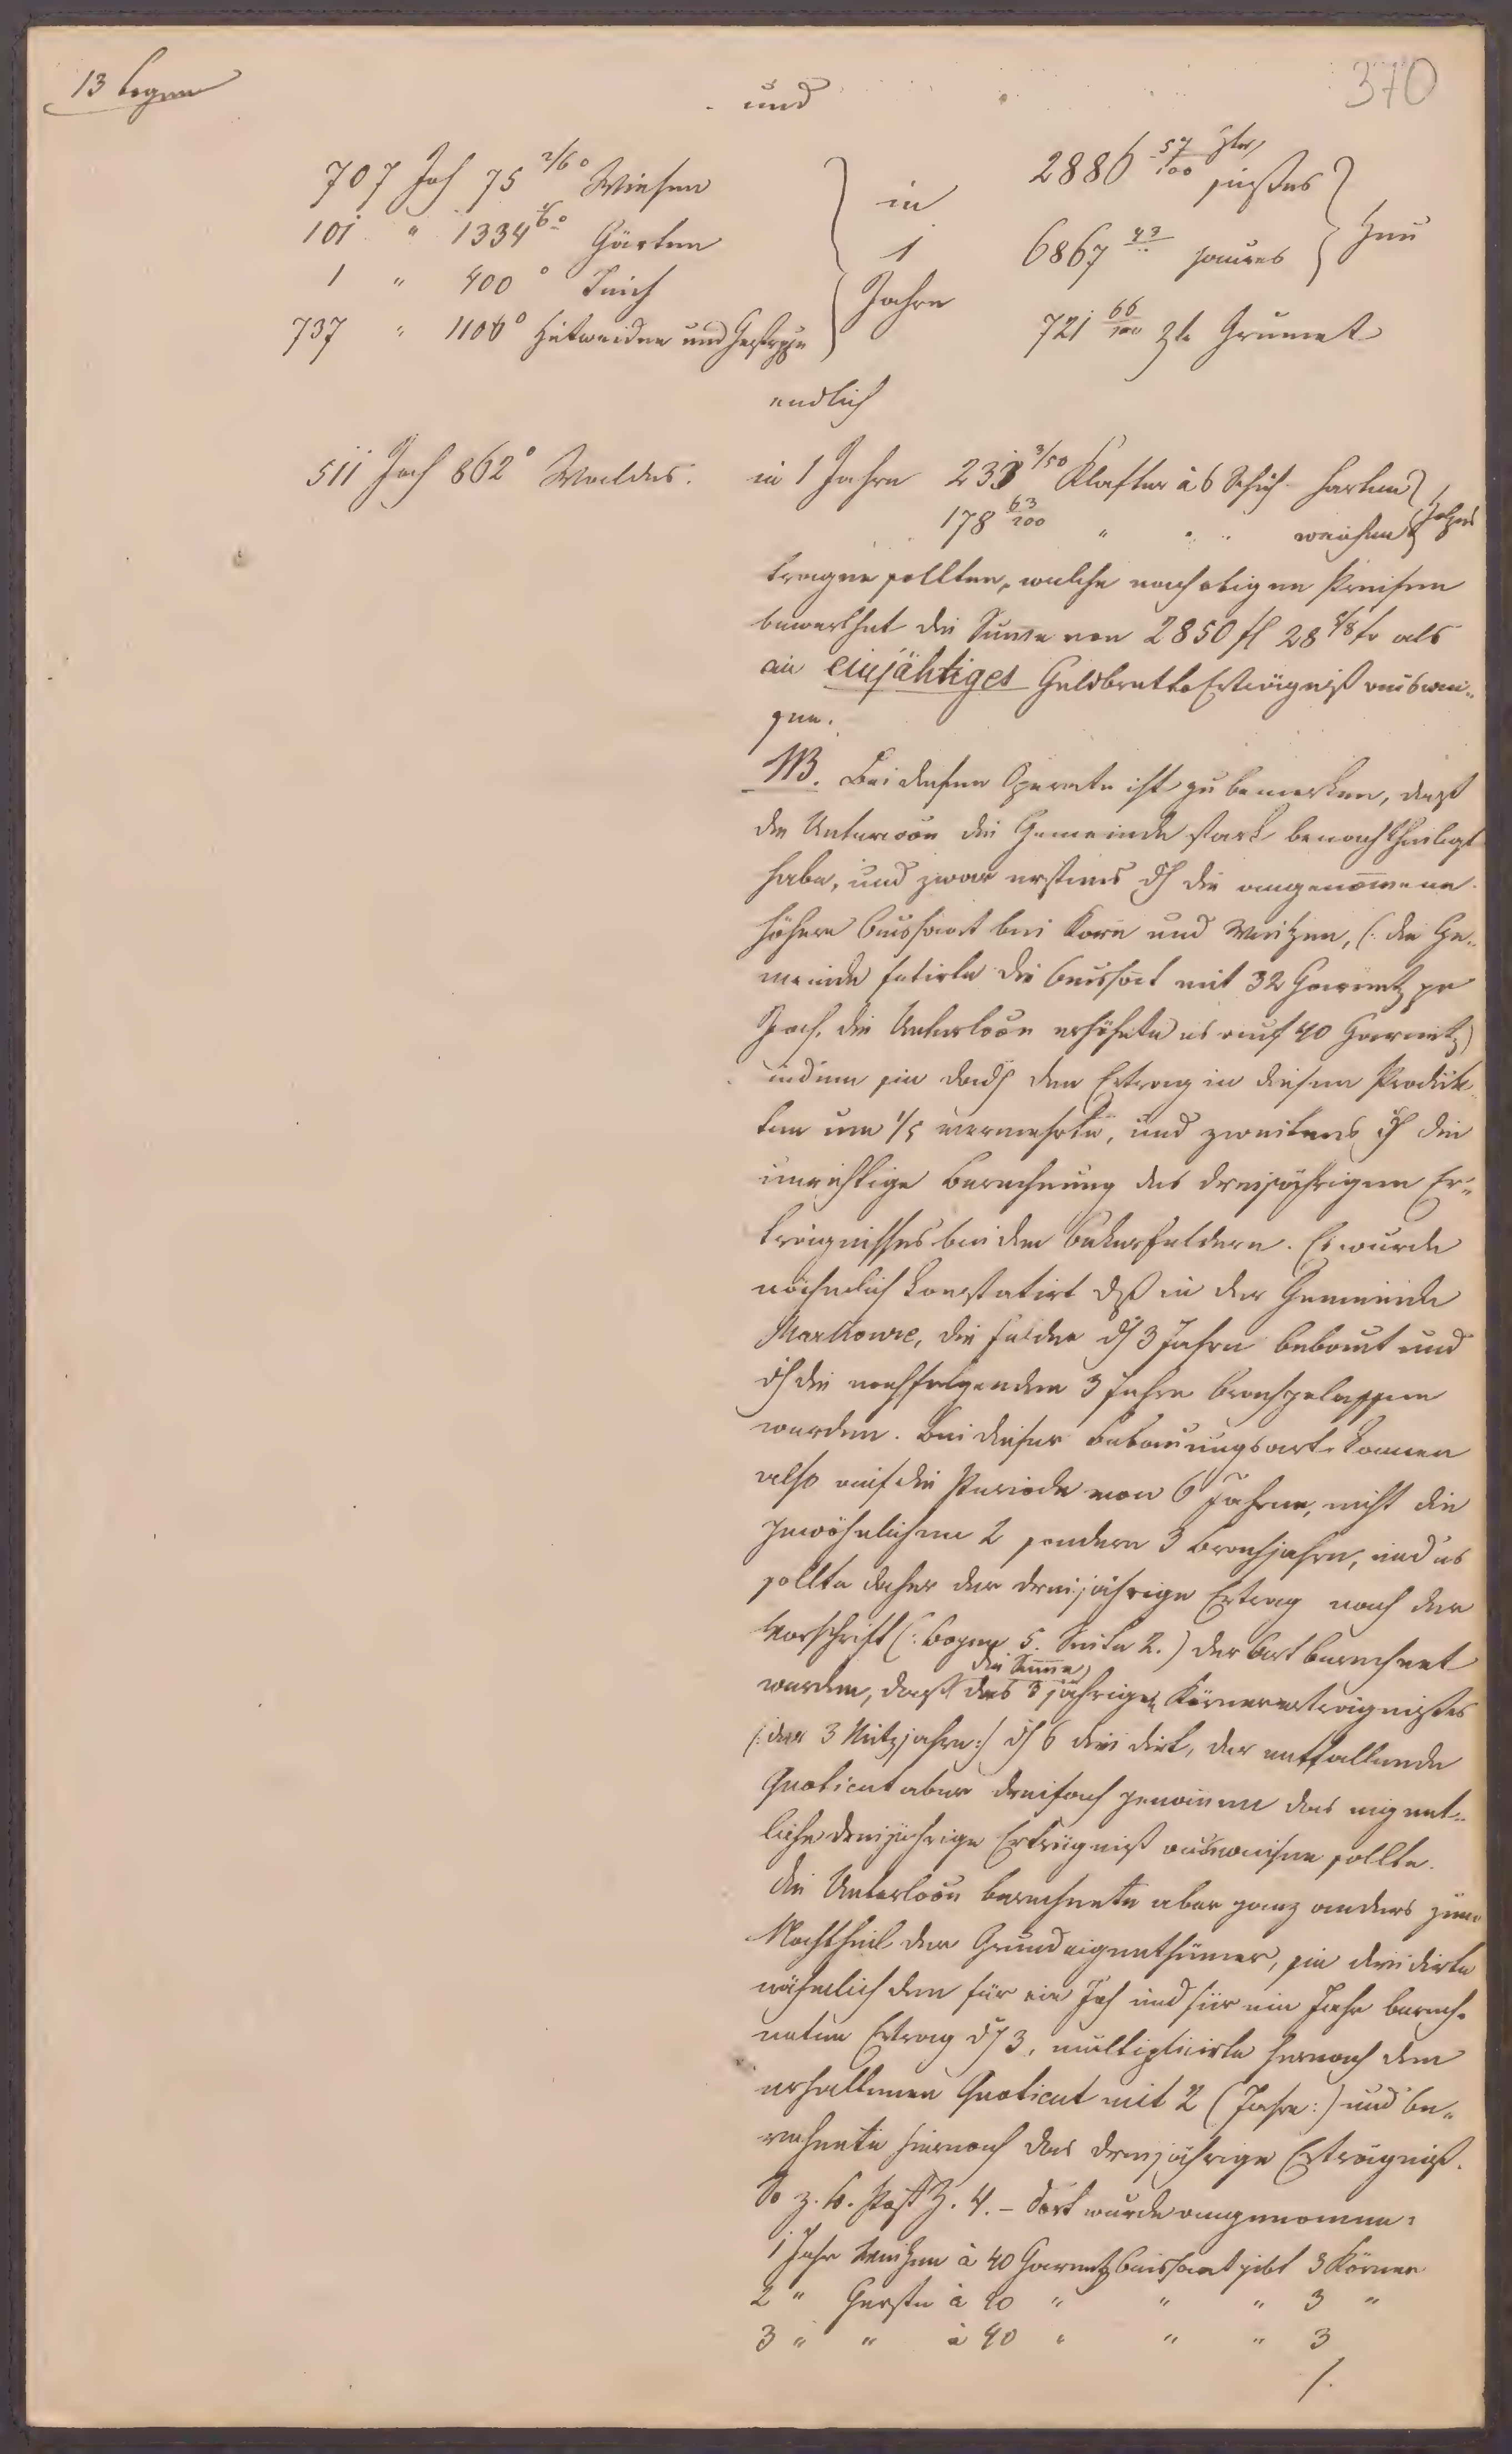 13 Bogen
370
und
707 Joch 75 2/6° Wiesen
101 " 1334 4/6° Gärten
1 " 400° Teich
737 " 1106° Hutweiden und Gestrippe
in
1
Jahre
2886 57/100 Ztr, süßes
6867 43/" saures
Heu
721 66/100 Ztr Grumet
endlich
511 Joch 862° Waldes. in 1 Jahre 233 3/50 Klafter à 6 Schuh harten
178 63/100 " " " weichen Holzes
tragen sollten, welche nach obigen Preisen
bewerthet die Summe von 2850 fl 28 5/8 kr als
ein einjähriges Geldbrutto Erträgniß auswei-
sen.
NB. Bei diesem Operate ist zu bemerken, daß
die Untercoon die Gemeinde stark benachtheiligt
habe, und zwar erstens dh die angenommene
höhere Aussaat bei Korn und Weitzen, (: die Ge-
meinde fatirte die Aussaat mit 32 Garnetz pr
Joch, die Unterlocon erhöhte es auf 40 Garnetz)
indem sie dadh den Ertrag in diesen Produk-
ten um 1/5 vermehrte, und zweitens dh die
unrichtige Berechnung des dreijährigen Er-
trägnisses bei den Ackerfeldern. Es wurde
nähmlich konstatirt dß in der Gemeinde
Markowce, die Felder dh 3 Jahre bebaut und
dh die nachfolgenden 3 Jahre brachgelassen
werden. Bei dieser Bebauungsart kommen
also auf die Periode von 6 Jahren, nicht die
gewöhnlichen 2 sondern 3 Brachjahre, und es
sollte daher der dreijährige Ertrag nach der
Vorschrift (: Bogen 5. Seite 2.) der Art berechnet
die Summe
werden, daß des 3 jährigen Körnererträgnißes
(: der 3 Nutzjahre :) dh 6 dividirt, der entfallende
Quotient aber dreifach genommen das eigent-
liche dreijährige Erträgniß ausweisen sollte.
Die Unterlocon berechnete aber ganz anders zum
Nachtheil der Grundeigenthümer, sie dividirte
nähmlich den für ein Joch und für ein Jahr berech-
neten Ertrag dh 3, multiplicirte hernach den
erhaltenen Quotient mit 2 (Jahre :) und be-
rechnete hiernach das dreijährige Erträgniß.
So z. B. Post Z. 4. – dort wurde angenommen:
1 Jahr Weitzen à 40 Garnetz Aussaat gibt 3 Körner
2 " Gerste à 40 " " " 3 "
3 " " à 40 " " " 3
/.